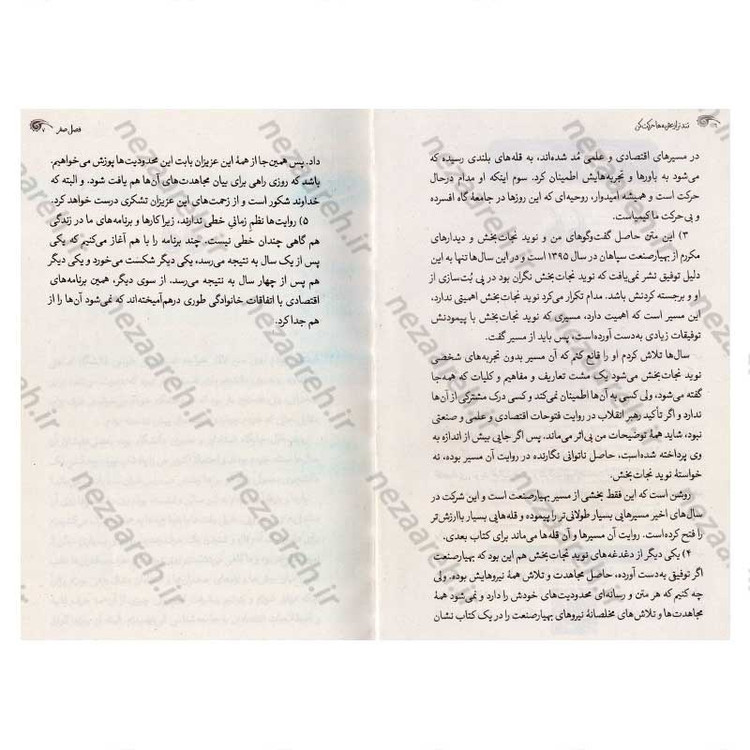 تندتر از عقربه‌ها حرکت کن
در مسیرهای اقتصادی و علمی مُد شده‌اند، به قله‌های بلندی رسیده که
می‌شود به باورها و تجربه‌هایش اطمینان کرد. سوم اینکه او مدام درحال
حرکت است و همیشه امیدوار، روحیه‌ای که این روزها در جامعهٔ گاه افسرده
و بی‌حرکت ما کیمیاست.
۳) این متن حاصل گفت‌وگوهای من و نوید نجات‌بخش و دیدارهای
مکررم از بهیارصنعت سپاهان در سال ۱۳۹۵ است و در این سال‌ها تنها به این
دلیل توفیق نشر نمی‌یافت که نوید نجات‌بخش نگران بود در پی بُت‌سازی از
او و برجسته کردنش باشد. مدام تکرار می‌کرد نوید نجات‌بخش اهمیتی ندارد،
این مسیر است که اهمیت دارد، مسیری که نوید نجات‌بخش با پیمودنش
توفیقات زیادی به‌دست آورده‌است، پس باید از مسیر گفت.
سال‌ها تلاش کردم او را قانع کنم که آن مسیر بدون تجربه‌های شخصی
نوید نجات‌بخش می‌شود یک مشت تعاریف و مفاهیم و کلیات که همه‌جا
گفته می‌شود، ولی کسی به آن‌ها اطمینان نمی‌کند و کسی درک مشترکی از آن‌ها
ندارد و اگر تأکید رهبر انقلاب در روایت فتوحات اقتصادی و علمی و صنعتی
نبود، شاید همهٔ توضیحات من بی‌اثر می‌ماند. پس اگر جایی بیش از اندازه به
وی پرداخته شده‌است، حاصل ناتوانی نگارنده در روایت آن مسیر بوده، نه
خواستهٔ نوید نجات‌بخش.
روشن است که این فقط بخشی از مسیر بهیارصنعت است و این شرکت در
سال‌های اخیر مسیرهایی بسیار طولانی‌تر را پیموده و قله‌هایی بسیار باارزش‌تر
را فتح کرده‌است. روایت آن مسیرها و آن قله‌ها می‌ماند برای کتاب بعدی.
۴) یکی دیگر از دغدغه‌های نوید نجات‌بخش هم این بود که بهیارصنعت
اگر توفیقی به‌دست آورده، حاصل مجاهدت و تلاش همهٔ نیروهایش بوده، ولی
چه کنیم که هر متن و رسانه‌ای محدودیت‌های خودش را دارد و نمی‌شود همهٔ
مجاهدت‌ها و تلاش‌های مخلصانهٔ نیروهای بهیارصنعت را در یک کتاب نشان
فصل صفر
داد. پس همین‌جا از همهٔ این عزیزان بابت این محدودیت‌ها پوزش می‌خواهیم.
باشد که روزی راهی برای بیان مجاهدت‌های آن‌ها هم یافت شود. و البته که
خداوند شکور است و از زحمت‌های این عزیزان تشکری درست خواهد کرد.
۵) روایت‌ها نظمِ زمانیِ خطی ندارند، زیرا کارها و برنامه‌های ما در زندگی
هم گاهی چندان خطی نیست. چند برنامه را با هم آغاز می‌کنیم که یکی
پس از یک سال به نتیجه می‌رسد، یکی دیگر شکست می‌خورد و یکی دیگر
هم پس از چهار سال به نتیجه می‌رسد. از سوی دیگر، همین برنامه‌های
اقتصادی با اتفاقات خانوادگی طوری درهم‌آمیخته‌اند که نمی‌شود آن‌ها را از
هم جدا کرد.
nezaareh.ir
nezaareh.ir
nezaareh.ir
nezaareh.ir
nezaareh.ir
nezaareh.ir